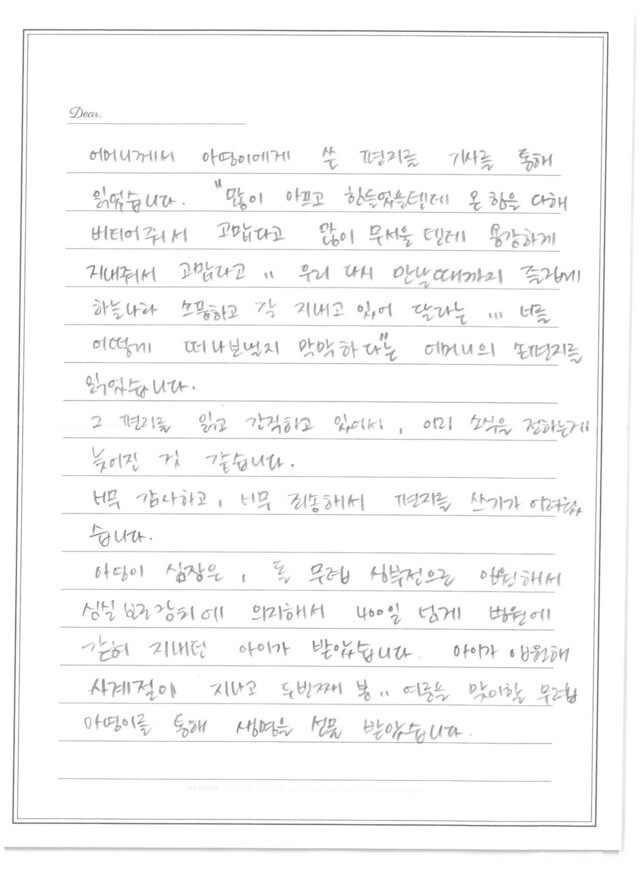 Dear.
어머니께서 아영이에게 쓴 편지를 기사를 통해
읽었습니다. "많이 아프고 힘들었을텐데 온 힘을 다해
버티어줘서 고맙다고 많이 무서울 텐데 용감하게
지내줘서 고맙다고 .. 우리 다시 만날때까지 즐겁게
하늘나라 소풍하고 잘 지내고 있어 달라는 ... 너를
어떻게 떠나보낼지 막막하다"는 어머니의 손편지를
읽었습니다.
그 편지를 읽고 간직하고 있어서, 이리 소식을 전하는게
늦어진 것 같습니다.
너무 감사하고, 너무 죄송해서 편지를 쓰기가 어려웠
습니다.
아영이 심장은, 돌 무렵 심부전으로 입원해서
심실보조장치에 의지해서 400일 넘게 병원에
갇혀 지내던 아이가 받았습니다. 아이가 입원해
사계절이 지나고 두번째 봄.. 여름을 맞이할 무렵
아영이를 통해 생명을 선물 받았습니다.